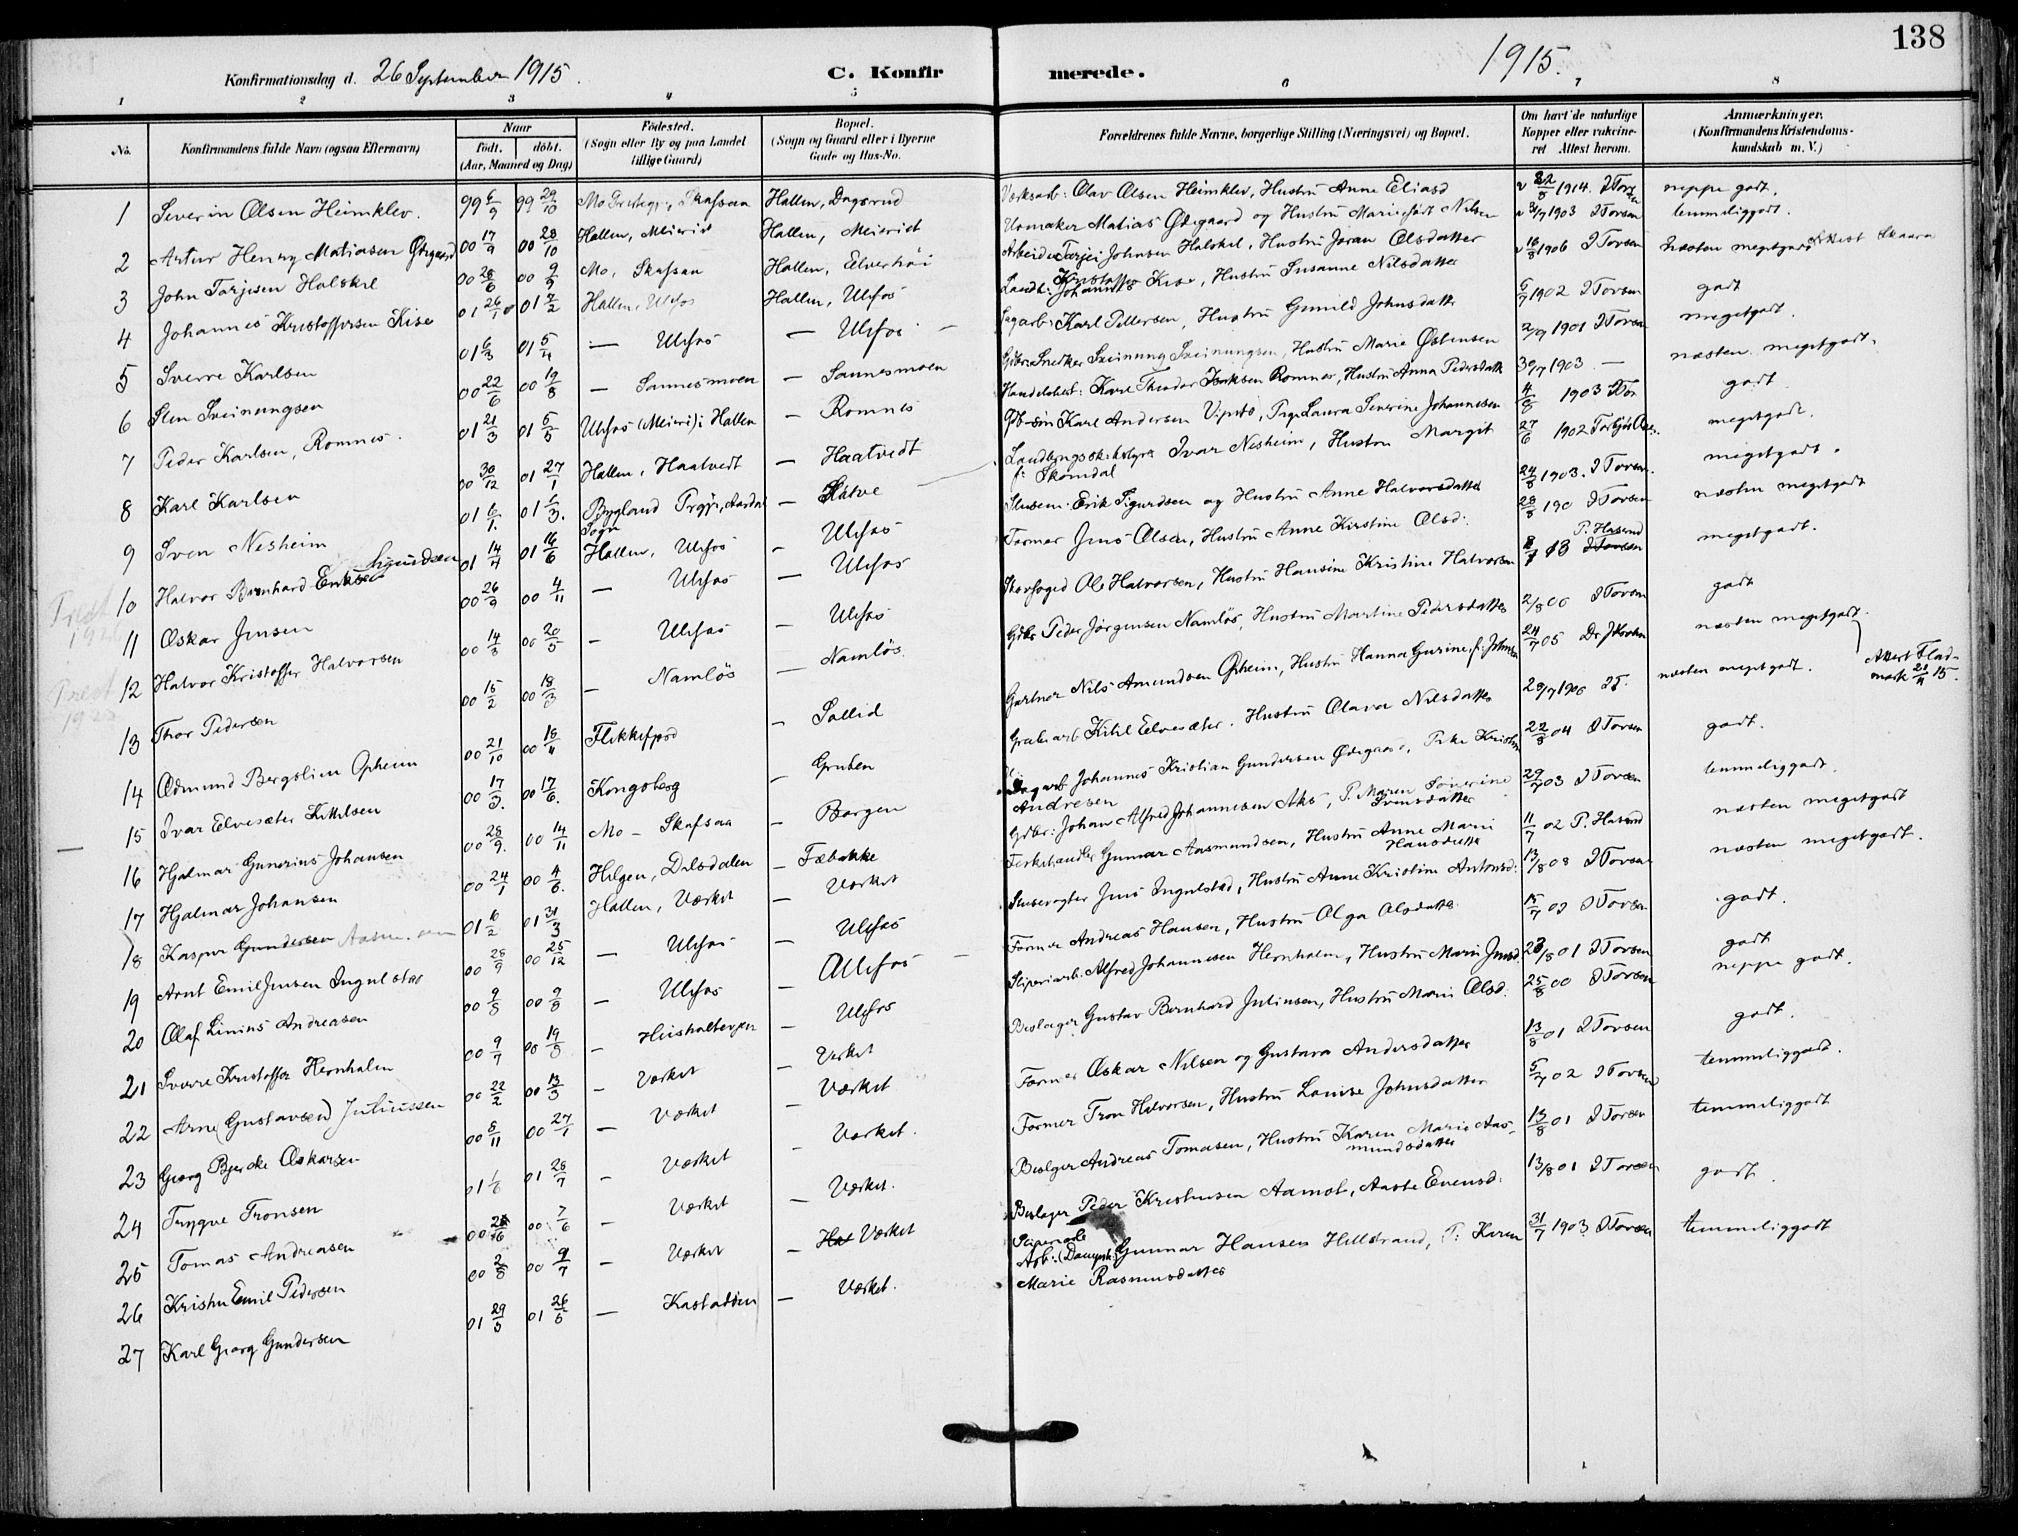 138
Konfirmationsdag d. 26 September 1915.
C. Konfirmerede.
1915.
1 2 3 4 5 6 7 8
No.
Konfirmandens fulde Navn (ogsaa Efternavn)
Naar
født. døbt.
(Aar, Maaned og Dag)
Fødested.
(Sogn eller By og paa Landet
tillige Gaard)
Bopæl.
(Sogn og Gaard eller i Byerne
Gade og Hus-No.
Forældrenes fulde Navne, borgerlige Stilling (Næringsvei) og Bopæl.
Om havt de naturlige
Kopper eller vakcine-
ret Attest herom.
Anmærkninger.
(Konfirmandens Kristendoms-
kundskab m. V.)
1 Severin Olsen Heimklev. 99 6/9 99 29/10 Mo Skafsaa Hollen, Dagsrud Værksarb: Olav Olsen Heimklev, Hustru Anne Eliasd 1914. neppe godt.
2 Artur Henry Matiasen Ødegaard 00 17/9 00 28/10 Hollen, Meieriet Hollen, Meieriet Urmaker Matias Ødegaard og Hustru Marie født Nilsen 31/7 1903 J Torsen temmeliggodt.
3 John Tarjesen Halskil 00 28/6 00 9/9 Mo, Skafsaa Hollen, Elverhøi Arbeider Tarjei Johnsen Halskil, Hustru Jøran Olsdatter 16/8 1906 J Torsen Næsten megetgodt Attest Skaara
4 Johannes Kristoffersen Kise 01 26/1 01 2/2 Hollen, Ulefos Hollen, Ulefos Landh: Kristoffer Johannes Kise, Hustru Susanne Nilsdatter 5/7 1902 J Torsen godt
5 Sverre Karlsen 01 6/3 01 5/4 — Ulefos — Ulefos Sagarb: Karl Pettersen, Hustru Gunild Johnsdatter 2/9 1901 J Torsen megetgodt.
6 Sten Sveinungsen 00 22/6 00 19/8 — Sannesmoen — Sannesmoen Gbr. Snedker Sveinung Sveinungsen, Hustru Marie Østensen 30/7 1903 — næsten megetgodt.
7 Peder Karlsen, Romnes. 01 21/3 01 5/5 Ulefos (Meieri) i Hollen — Romnes Handelsbest: Karl Theodor Isaksen Romnes, Hustru Anna Pedersdatter 4/8 1903 godt
8 Karl Karlsen 00 30/12 01 27/1 Hollen, Haatvedt — Haatvedt Karl Andersen Vipeto, Pige Laura Severine Johannesen 27/6 1902 megetgodt.
9 Sven Nesheim 01 6/1. 01 6/3. Bygland Prgj, Aardal Sogn — Landbrugsskolestyrer Ivar Nesheim, Hustru Margit f: Skomdal 24/8 1903. J Torsen. megetgodt.
10 Halvor Bernhard Eriksen Sigurdsen 01 14/4 01 16/6 Hollen, Ulefos — Ulefos Slusem: Erik Sigurdsen og Hustru Anne Halvorsdatter 28/8 190 J Torsen næsten megetgodt
11 Oskar Jensen 00 26/9 00 4/11 — Ulefos — Ulefos Former Jens Olsen, Hustru Anne Kirstine Olsd: 13 P. Hasund J Torsen megetgodt.
12 Halvor Kristoffer Halvorsen 00 14/3 00 20/5 — Ulefos — Ulefos Skovfoged Ole Halvorsen, Hustru Hansine Kristine Halvorsen 2/8 00 J Torsen godt
13 Thor Pedersen 00 15/2 00 18/3 — Namløs — Namløs. Gdbr Peder Jørgensen Namløs, Hustru Martine Pedersdatter 24/7 05 næsten megetgodt.
14 Edmund Bergslien Opheim 00 21/10 00 15/4 Flekkefjord — Sollid Gartner Nils Amundsen Opheim, Hustru Hanna Gurine f: Johnsen 20/7 1900 J T. næsten megetgodt. Attest Flad- mark 21/4 15.
15 Ivar Elvesæter Kittilsen 00 17/3. 00 17/6. Kongsberg — Gruben Grubearb Kittil Elvesæter. Hustru Olava Nilsdatter 22/8 04 J Torsen godt.
16 Hjalmar Gunerius Johansen 00 28/9. 00 14/11 Mo – Skafsaa — Borgen Dagarb Johannes Kristian Gundersen Ødegaard, Pike Kristine Andresen 29/7 03 J Torsen temmeliggodt.
17 Hjalmar Johansen 00 24/1 00 4/6. Helgen, Dilsdalen — Fæbakke Gdbr: Johan Alfred Johannesen Aks, P. Maren Severine Svensdatter 11/7 02 P. Hasund næsten megetgodt
18 Kasper Gundersen 01 6/2 01 31/3 Hollen, Værket — Værket Ferkehandler Gunnar Aasmundsen, Hustru Anne Marie Hansdatter 13/8 08 J Torsen næsten megetgodt.
19 Arnt Emil Jensen Ingulstad 00 28/9 00 25/12 — Ulefos — Ulefos Slusevogter Jens Ingulstad, Hustru Anne Kristine Antonsd: 15/7 03 J Torsen godt.
20 Olaf Linius Andreasen 00 9/8 00 9/9 — Ulefos — Ulefos Former Andreas Hansen, Hustru Olga Olsdatter 23/8 01 J Torsen godt
21 Sverre Kristoffer Hernholm 00 9/7 00 19/8 — Husholtveien — Ulefos Sliperiarb. Alfred Johannesen Hernholm, Hustru Marie Jensd. 25/8 00 J Torsen neppe godt.
22 Arne (Gustavsen) Juliussen 00 22/2 00 13/3 — Værket — Værket Beslager Gustav Bernhard Juliusen, Hustru Marie Olsd: 13/8 01 J Torsen godt.
23 Georg Bjercke Oskarsen 00 8/11 00 27/1 — Værket — Værket Former Oskar Nilsen og Gustava Andersdatter 5/7 02 J Torsen temmeliggodt.
24 Trygve Tronsen 01 1/8 01 28/7 — Værket — Værket. Former Tron Halvorsen, Hustru Lovise Johnsdatter 13/8 01 J Torsen temmeliggodt
25 Tomas Andreasen 00 00 7/6 — Værket — Værket. Beslager Andreas Tomasen, Hustru Karen Marie Aas- mundsdatter 13/8 01 J Torsen godt
26 Kristen Emil Pedersen 00 2/8 00 9/7 — Værket — Værket Beslager Peder Kristensen Aamot, Aaste Evensd. 31/7 1903. J Torsen temmeliggodt
27 Karl Georg Gundersen 01 29/3 01 26/5 — Kastadden — Værket. Arb: Gunnar Hansen Hellstrand, P: Karen Marie Rasmusdatter